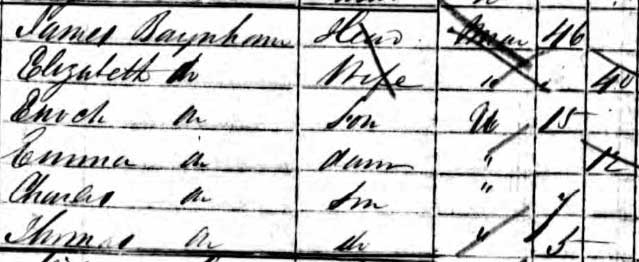 James Baynham Head Mar 46
Elizabeth do Wife " 40
Enoch do Son U 15
Emma do daur " 12
Charles do Son " 7
Thomas do do " 5